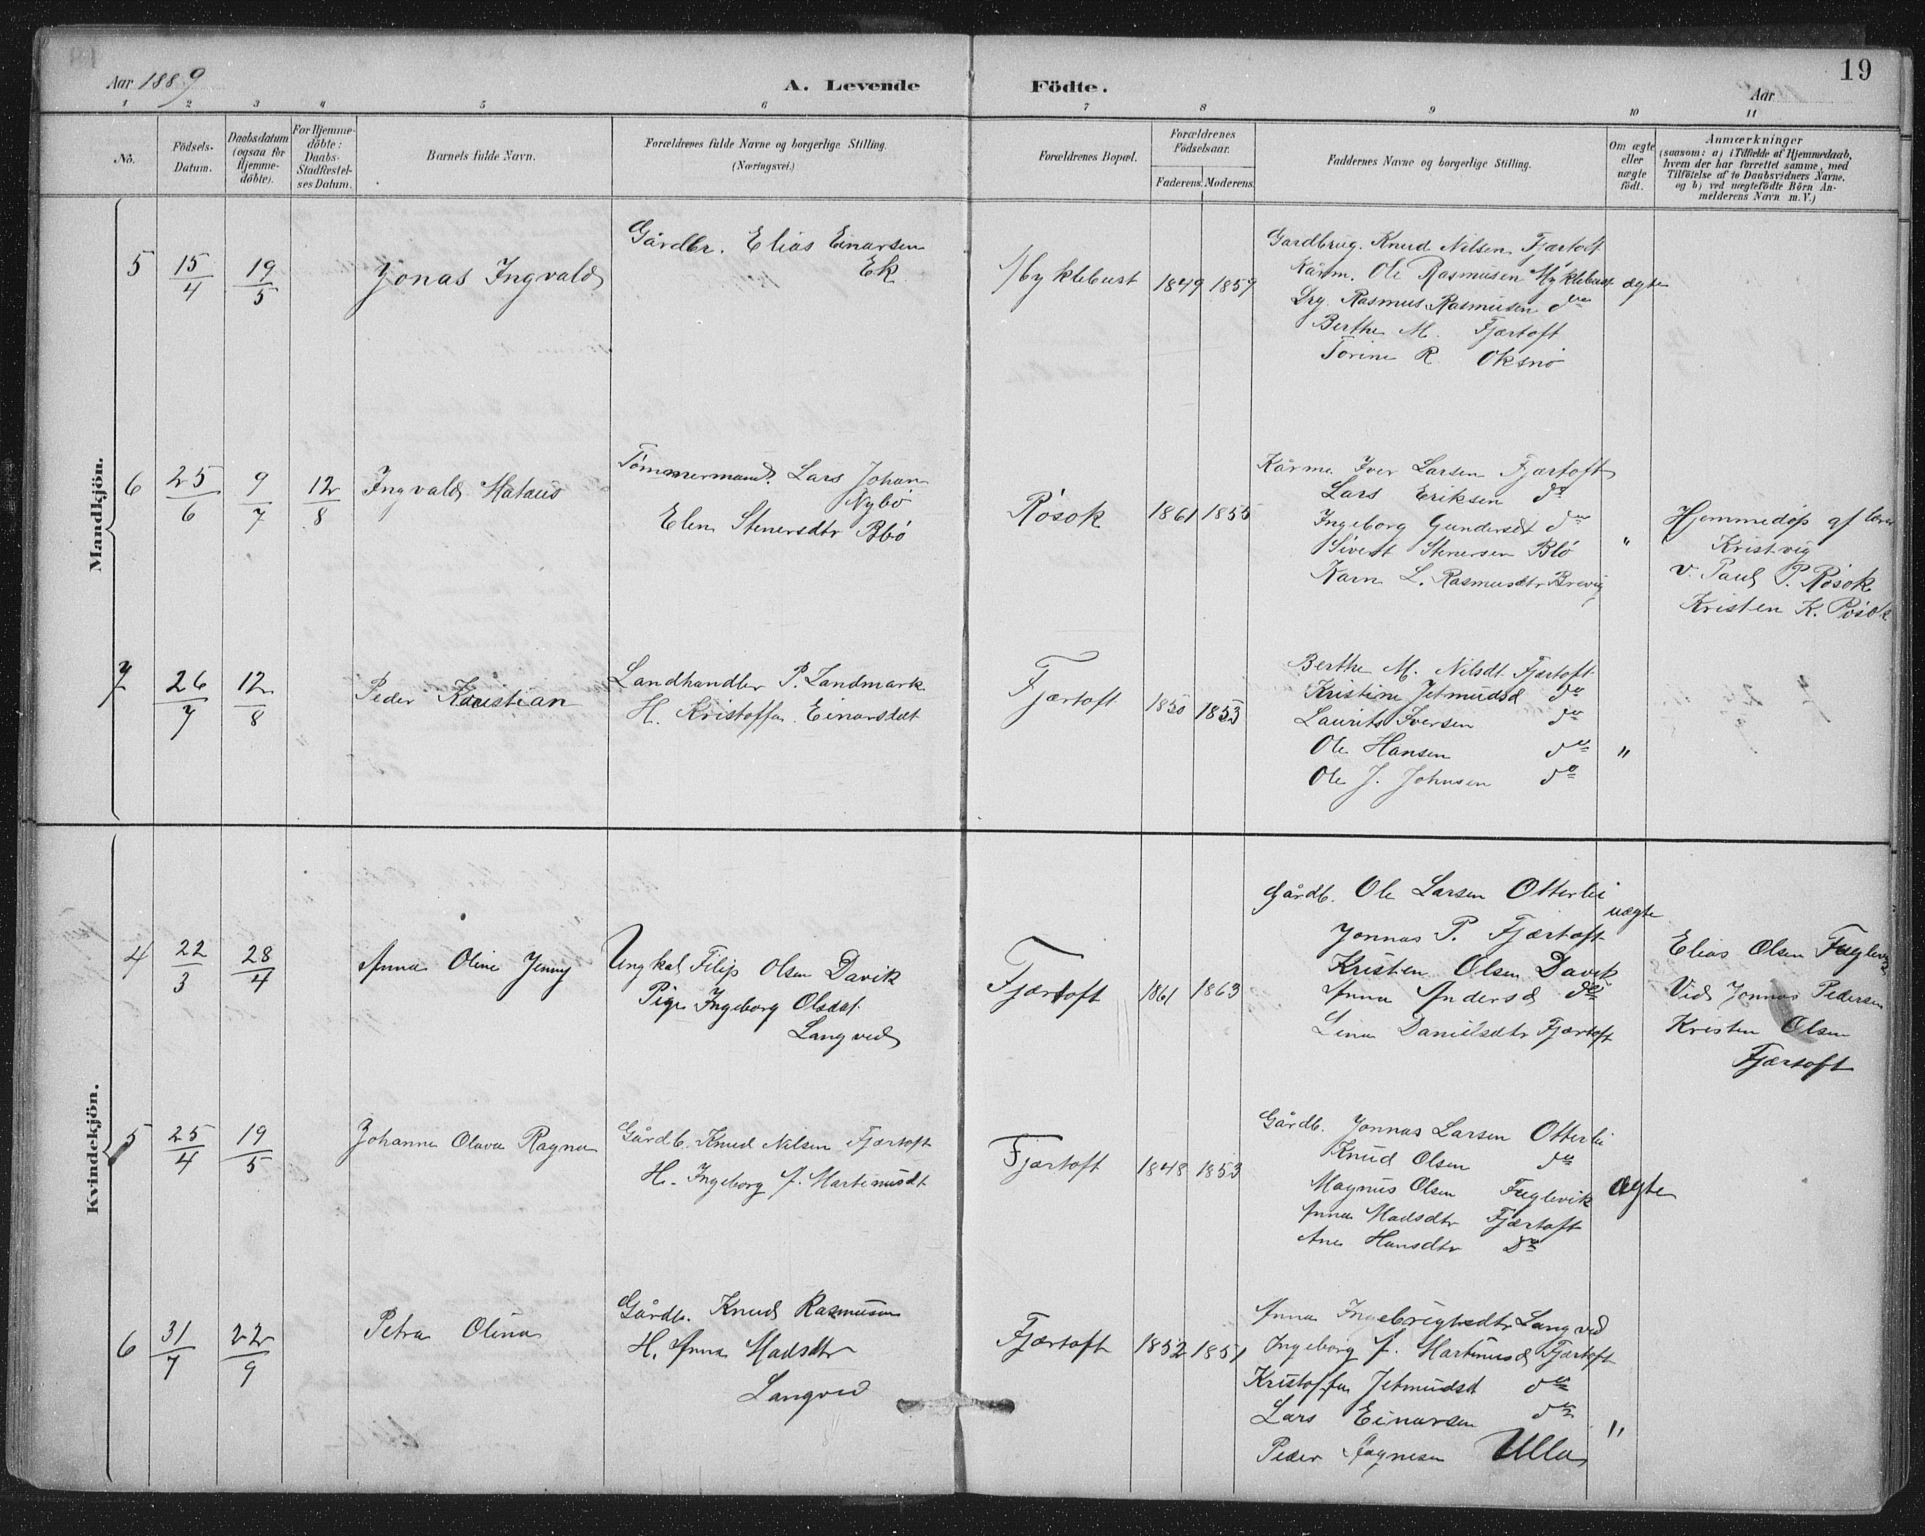 Aar 1889
A. Levende
Födte.
Aar
19
1 2 3 4 5 6 7 8 9 10 11
No.
Födsels-
Datum.
Daabsdatum
(ogsaa for
Hjemme-
döbte).
For Hjemme-
döbte:
Daabs-
Stadfæstel-
ses Datum.
Barnets fulde Navn.
Forældrenes fulde Navne og borgerlige Stilling.
(Næringsvei.)
Forældrenes Bopæl.
Forældrenes
Födselsaar.
Faderens. Moderens.
Faddernes Navne og borgerlige Stilling.
Om ægte
eller
uægte
födt.
Anmærkninger
(saasom: a) i Tilfælde af Hjemmedaab,
hvem der har forrettet samme, med
Tilföielse af to Daabsvidners Navne,
og b) ved uægtefödte Börn An-
melderens Navn m.V.)
Mandkjön.
5
15/4
19/5
Jonas Ingvald
Gårdbr. Elias Einarsen
Ek
Myklebust
1849 1859
Gardbrug. Knud Nilsen Fjærtoft
Kårm. Ole Rasmusen Myklebust
Rasmus Rasmusen do
Berthe M. Fjærtoft
Torine R. Oksnø
ægte
6
25/6
9/7
12/8
Ingvald Mataus
Tømmermand Lars Johan
Nybø
Elen Stenersdtr Blø
Røsok
1861 1855
Kårm. Iver Larsen Fjærtoft
Lars Eriksen do
Ingeborg Gundersdt do
Sivert Stenersen Blø
Karn L. Rasmusdtr Brevig
"
Hjemmedøp af
Kristvig
v. Paul P. Røsok
Kristen K. Røsok
7
26/7
12/8
Peder Kristian
Landhandler P. Landmark
H. Kristoffa Einarsdat
Fjærtoft
1850 1853
Berthe M. Nilsdt Fjærtoft
Kristine Jetmudsd do
Laurits Iversen do
Ole Hansen do
Ole J. Johnsen do
"
Kvindekjön.
4
22/3
28/4
Anna Oline Jenny
Ungkal Filip Olsen Davik
Pige Ingeborg Olsdat.
Langved
Fjærtoft
1861 1863
Gårdb. Ole Larsen Otterlei
Jonnas P. Fjærtoft
Kristen Olsen Davik
Anna Andersd do
Lina Danielsdtr Fjærtoft
uægte
Elias Olsen Fuglevik
Vid Jonnas Pedersen
Kristen Olsen
Fjærtoft
5
25/4
19/5
Johanna Olava Ragna
Gårdb. Knud Nilsen Fjærtoft
H. Ingeborg A. Martinusdt
Fjærtoft
1848 1853
Gårdb. Jonnas Larsen Otterlei
Knud Olsen do
Magnus Olsen Fuglevik
Anna Madsdtr Fjærtoft
Ane Hansdtr Do
ægte
6
31/7
22/9
Petra Olina
Gårdb. Knud Rasmusen
H. Anna Madsdtr
Langved
Fjærtoft
1852 1851
Anna Ingebrigtsdtr Langved
Ingeborg A. Martinusd Fjærtoft
Kristoffa Jetmudsd do
Lars Einarsen do
Peder Aagnesen Ulla
"